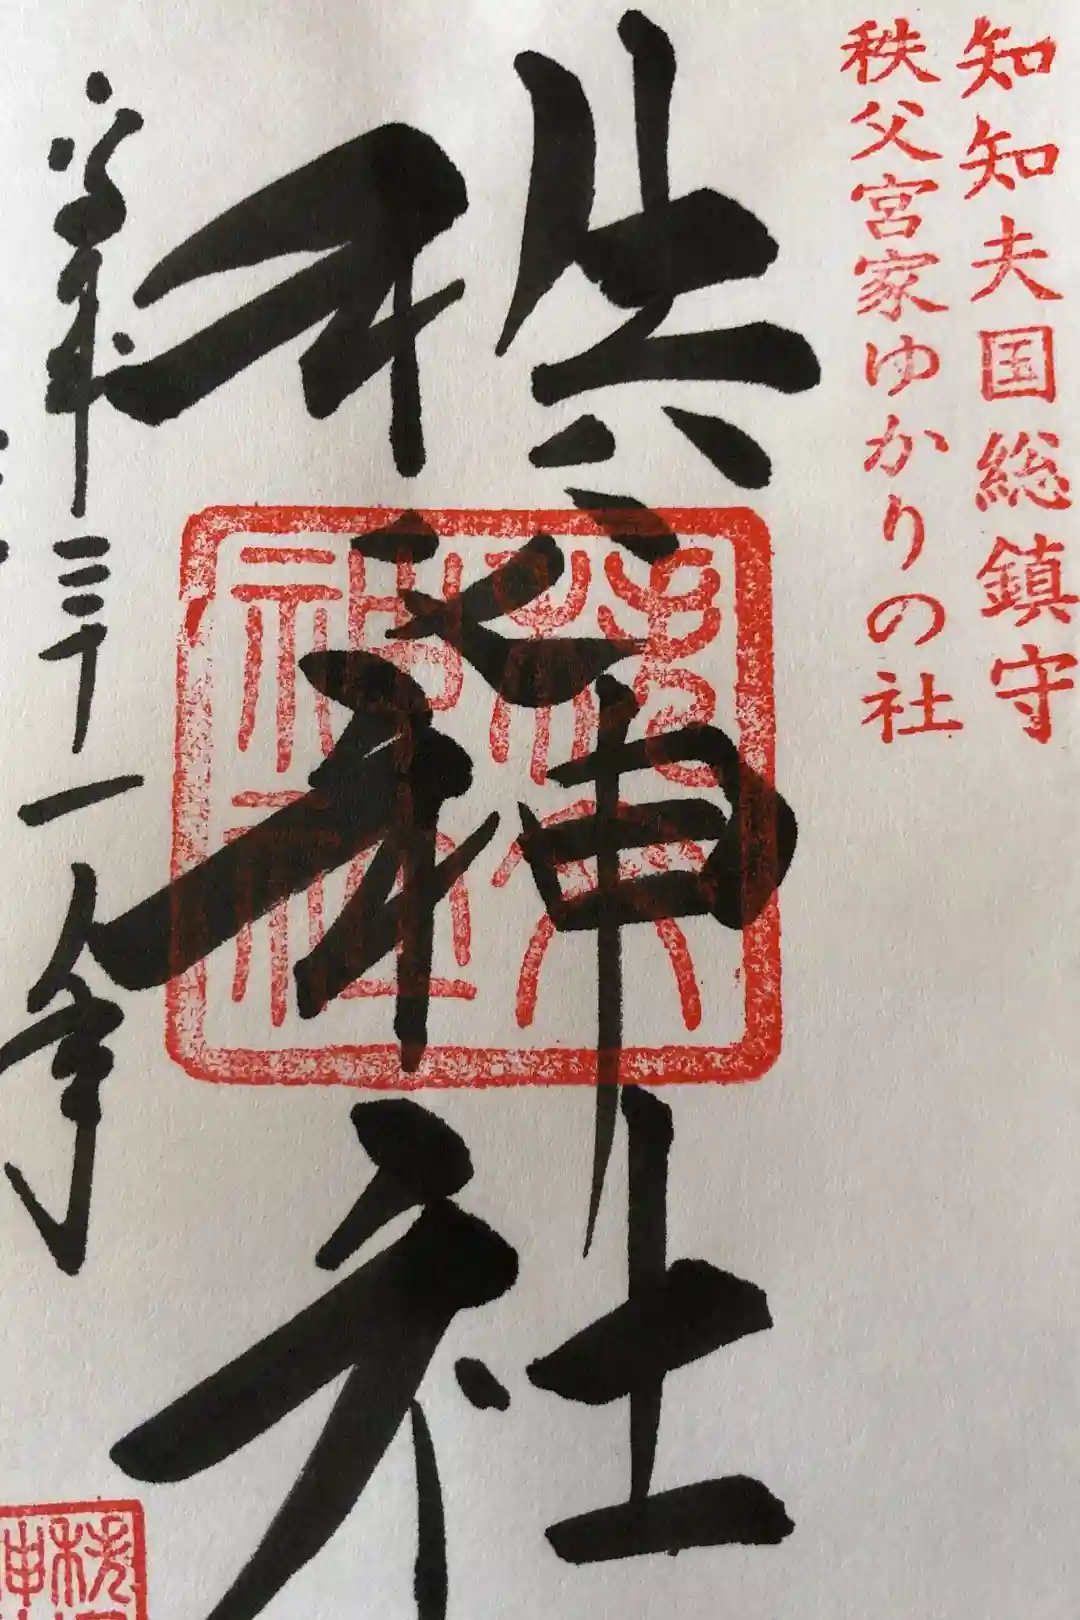 知知夫国総鎮守
秩父宮家ゆかりの社
秩父神社
秩父
神社
平成三十一年